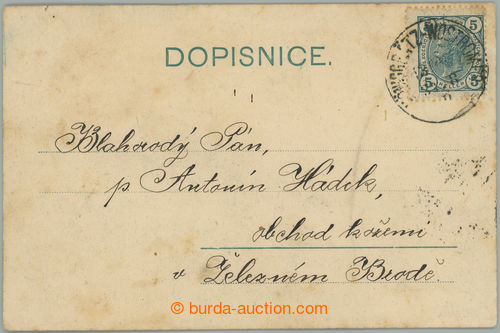 DOPISNICE.
5 5
5 5
Blahorodý Pán,
p. Antonín Hádek,
obchod kožemi
v Železném Brodě.
© burda-auction.com